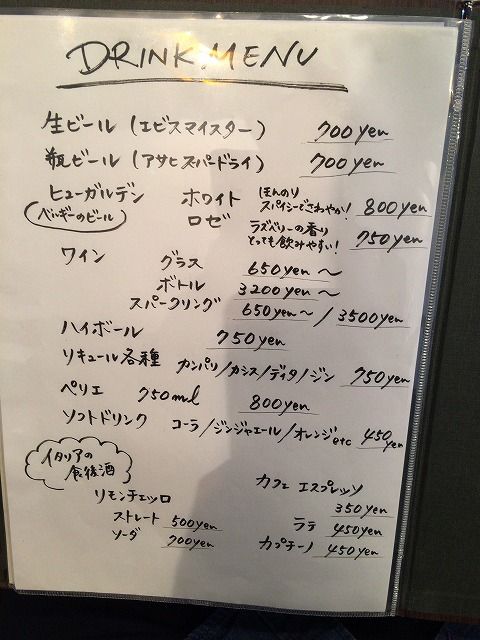 DRINK MENU
生ビール (エビスマイスター) 700yen
瓶ビール (アサヒスーパードライ) 700yen
ヒューガルデン ホワイト ほんのりスパイシーでさわやか! 800yen
(ベルギーのビール) ロゼ ラズベリーの香りとっても飲みやすい! 750yen
ワイン グラス 650yen〜
ボトル 3200yen〜
スパークリング 650yen〜/3500yen
ハイボール 750yen
リキュール各種 カンパリ/カシス/ディタ/ジン 750yen
ペリエ 750ml 800yen
ソフトドリンク コーラ/ジンジャエール/オレンジetc 450yen
イタリアの食後酒
リモンチェッロ
ストレート 500yen
ソーダ 700yen
カフェ エスプレッソ
350yen
ラテ 450yen
カプチーノ 450yen